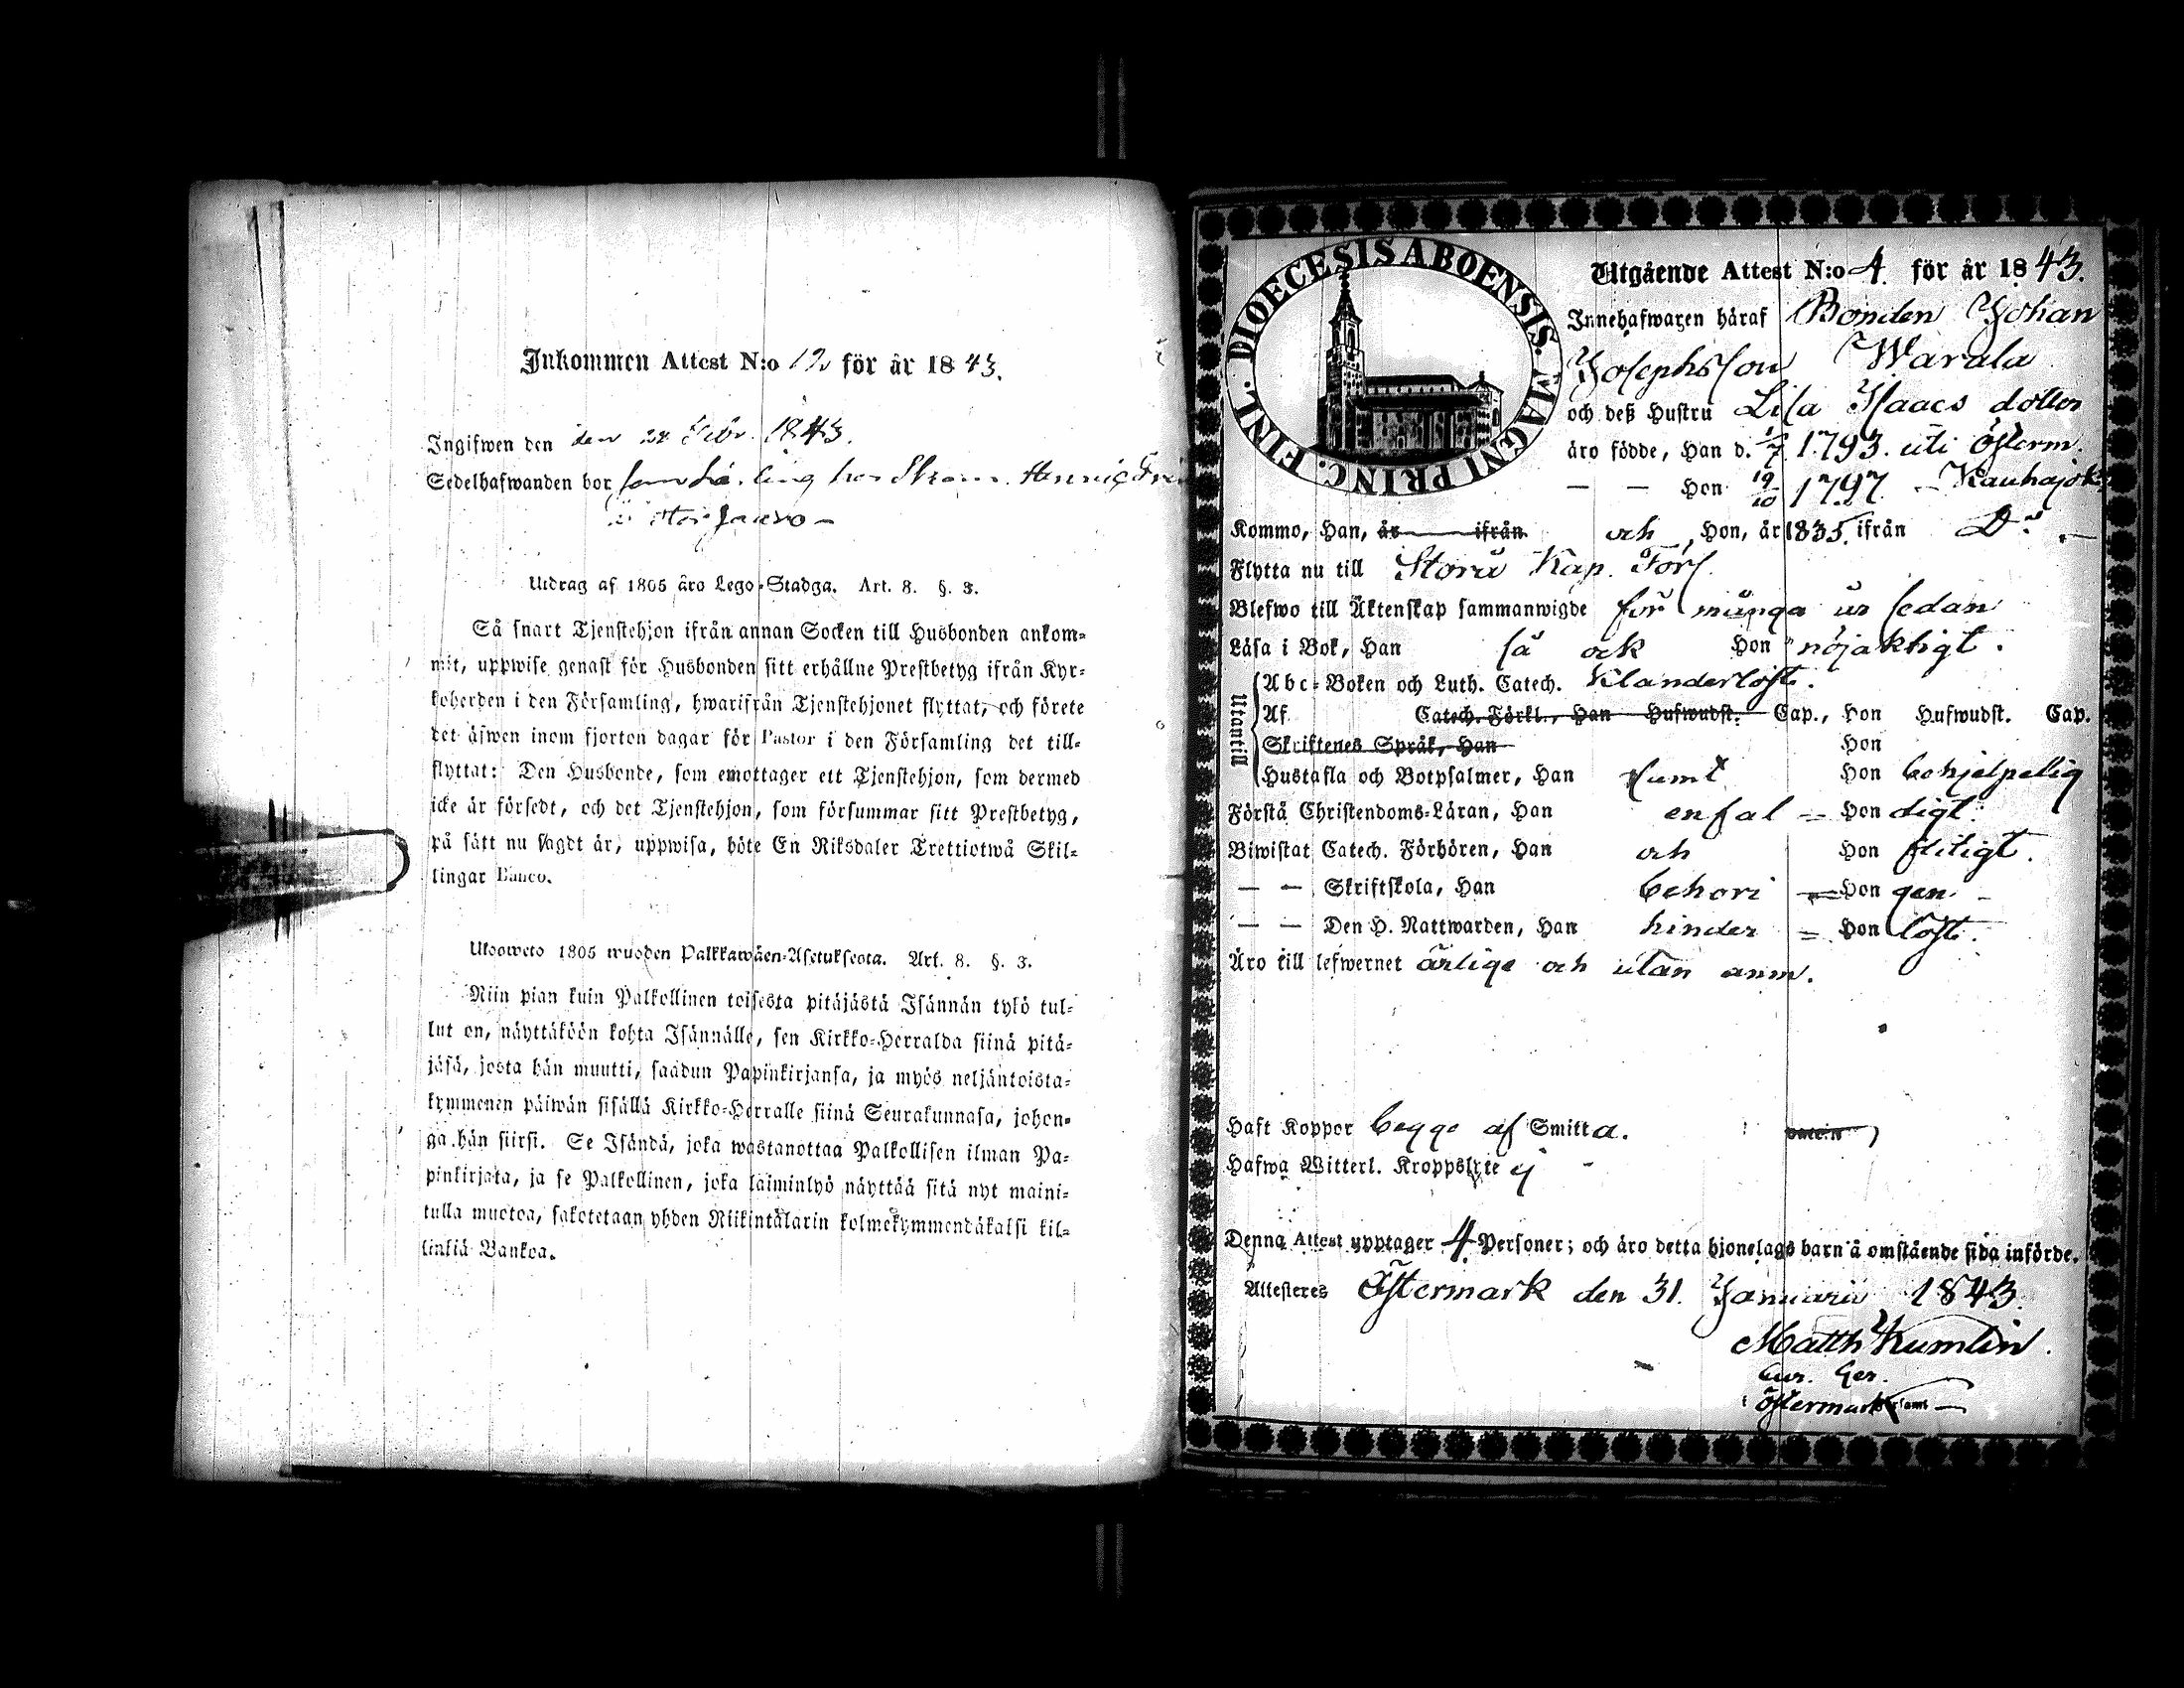 Inkommen Attest N:o 12 för år 1843.
Ingifwen den den 28 Febr. 1843.
Sedelhafwanden bor hos Henric
Utdrag af 1805 års Lego-Stadga. Art. 8. §. 3.
Så snart Tjenstehjon ifrån annan Socken till Husbonden ankom-
mit, uppwise genast för Husbonden sitt erhållne Prestbetyg ifrån Kyr-
koherden i den Församling, hwarifrån Tjenstehjonet flyttat, och förete
det äfwen inom fjorton dagar för Pastor i den Församling det till-
flyttat: Den Husbonde, som emottager ett Tjenstehjon, som dermed
icke är försedt, och det Tjenstehjon, som försummar sitt Prestbetyg,
på sätt nu sagdt är, uppwisa, böte En Riksdaler Trettiotwå Skil-
lingar Banco.
Ulosweto 1805 wuoden Palkkawäen-Asetuksesta. Art. 8. §. 3.
Niin pian kuin Palkollinen toisesta pitäjästä Isännän tykö tul-
lut on, näyttäköön kohta Isännälle, sen Kirkko-Herralda siinä pitä-
jäsä, josta hän muutti, saadun Papinkirjansa, ja myös neljäntoista-
kymmenen päiwän sisällä Kirkko-Herralle siinä Seurakunnasa, johon-
ga hän siirsi. Se Isändä, joka wastanottaa Palkollisen ilman Pa-
pinkirjata, ja se Palkollinen, joka laiminlyö näyttää sitä nyt maini-
tulla muotoa, sakotetaan yhden Riikintalarin kolmekymmendäkaksi kil-
linkiä Bankoa.
DIOECESIS ABOENSIS. MAGNI PRINC. FINL.
Utgående Attest N:o 4. för år 1843.
Innehafwaren häraf Bonden Johan
Josephsson Warala
och deß Hustru Lisa Isaacs dotter
äro födde, Han d. 1/7 1793. uti Österm.
— — Hon 19/10 1797. – Kauhajoki
Kommo, Han, år ifrån och Hon, år 1835. ifrån D:o
Flytta nu till Storå Kap. Förs.
Blefwo till Äktenskap sammanwigde för många år sedan
Läsa i Bok, Han så ock Hon nöjaktigt.
Utantill
Abc-Boken och Luth. Catech. Klanderlöst.
Af Catech. Förkl., Han Hufwudst. Cap., Hon Hufwudst. Cap.
Skriftenes Språk, Han Hon
Hustafla och Botpsalmer, Han samt Hon behjelpelig
Förstå Christendoms-Läran, Han enfal = Hon digt.
Biwistat Catech. Förhören, Han och Hon flitigt.
— — Skriftskola, Han behöri = Hon gen
— — Den H. Nattwarden, Han hinder = Hon löst.
Äro till lefwernet ärlige och utan anm.
Haft Koppor begge af Smitta.
Hafwa Witterl. Kroppslyte ej
Denna Attest upptager 4 Personer; och äro detta hjonelags barn å omstående sida införde.
Attesteres Östermark den 31. Januarii 1843.
Matth Kumlin.
Cur. Ger.
Östermark